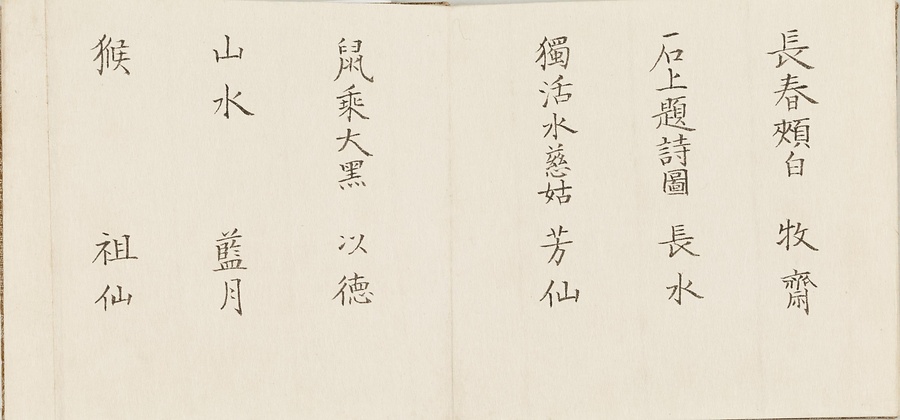 長春頰白 牧齋
石上題詩圖 長水
獨活水慈姑 芳仙
鼠乘大黑 以德
山水 藍月
猴 祖仙